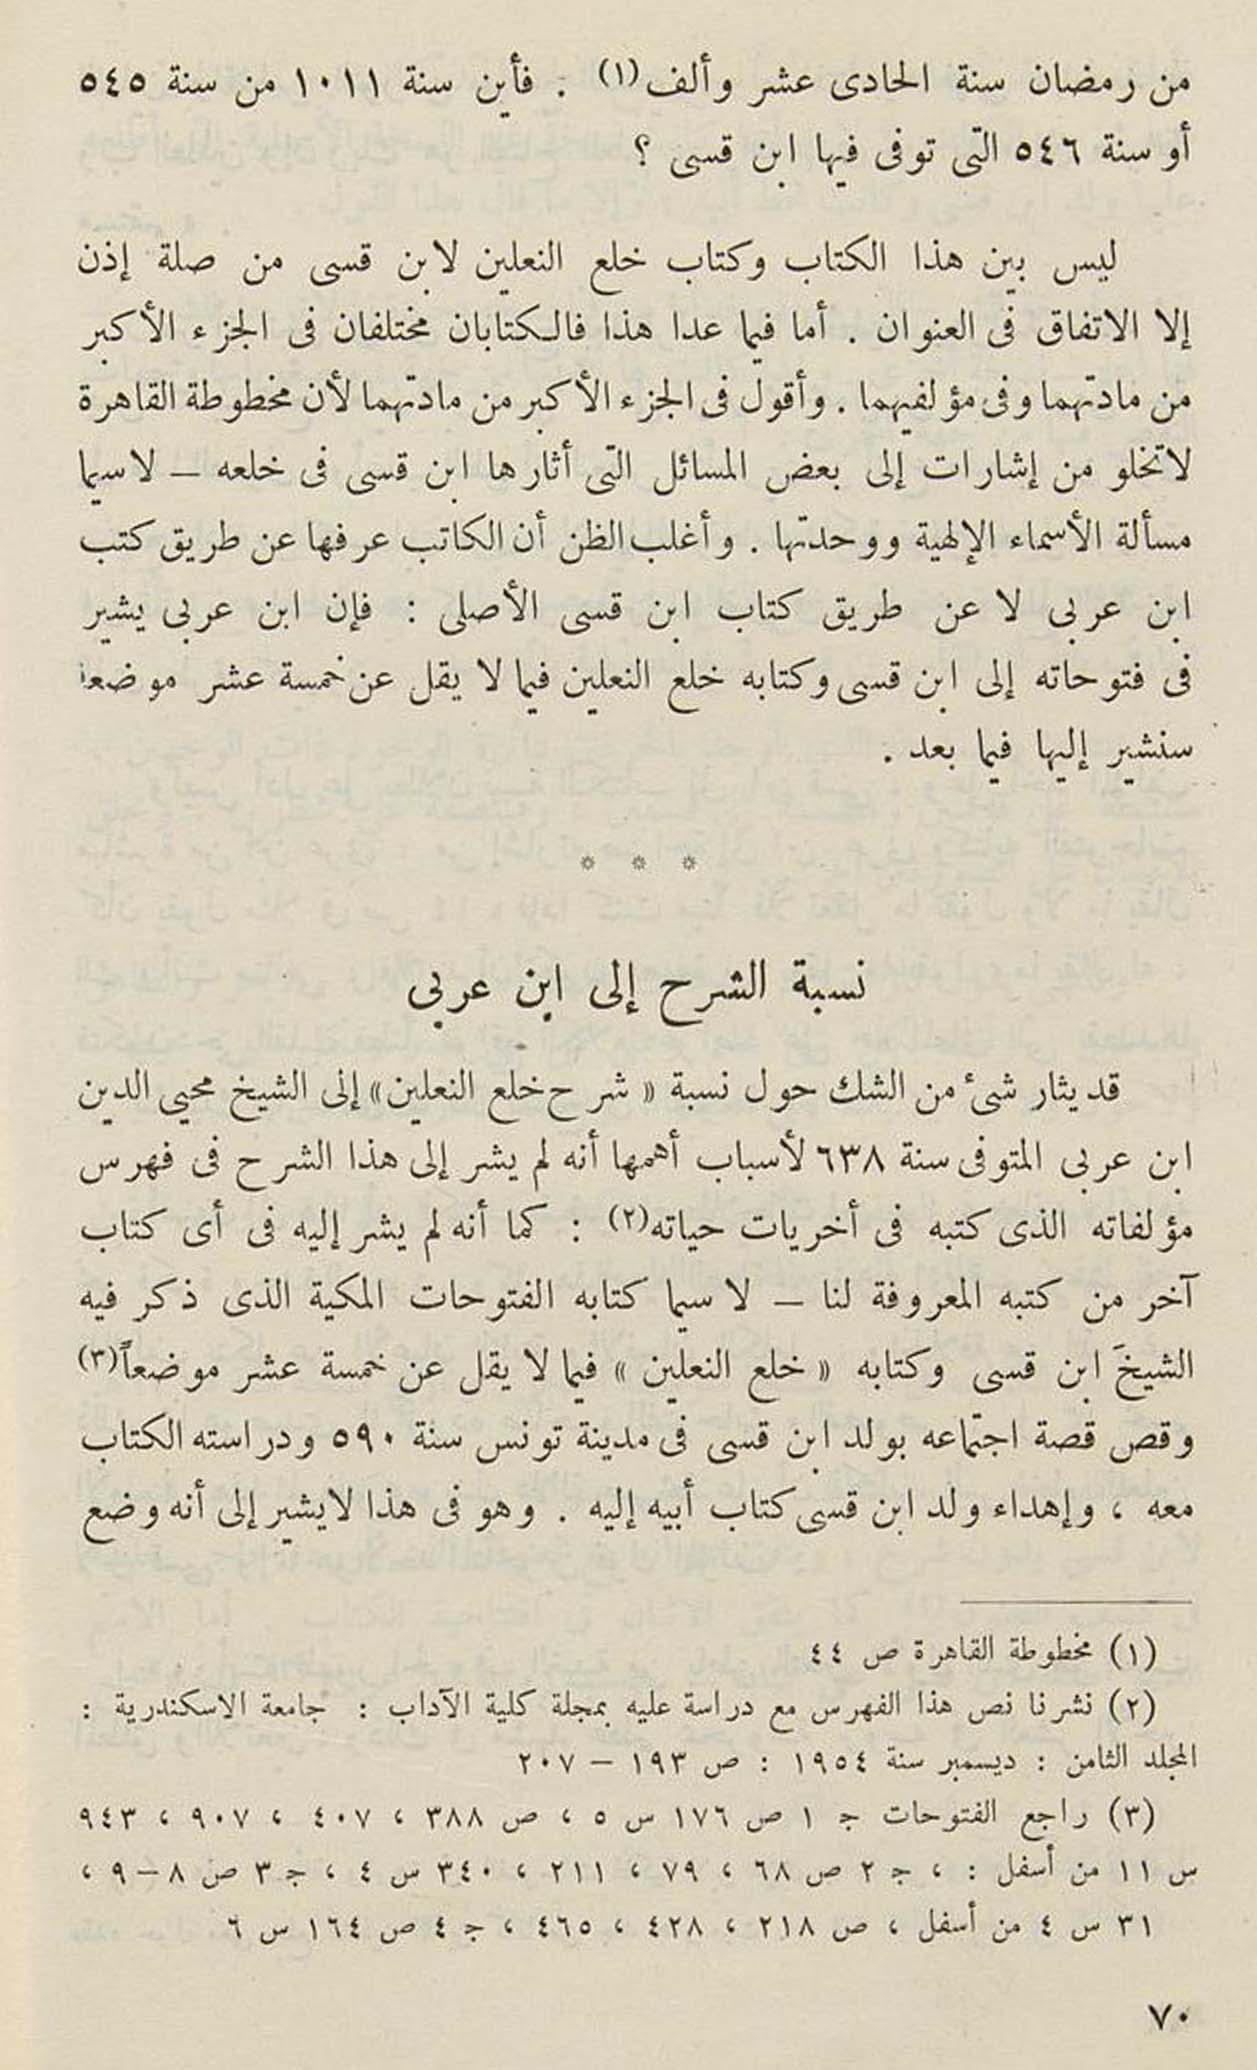 من رمضان سنة الحادى عشر وألف(١) . فأين سنة ١٠١١ من سنة ٥٤٥
أو سنة ٥٤٦ التى توفى فيها ابن قسى ؟
ليس بين هذا الكتاب وكتاب خلع النعلين لابن قسى من صلة إذن
إلا الاتفاق فى العنوان . أما فيما عدا هذا فالكتابان مختلفان فى الجزء الأكبر
من مادتهما وفى مؤلفيهما . وأقول فى الجزء الأكبر من مادتهما لأن مخطوطة القاهرة
لاتخلو من إشارات إلى بعض المسائل التى أثارها ابن قسى فى خلعه – لاسيما
مسألة الأسماء الإلهية ووحدتها . وأغلب الظن أن الكاتب عرفها عن طريق كتب
ابن عربى لا عن طريق كتاب ابن قسى الأصلى : فإن ابن عربى يشير
فى فتوحاته إلى ابن قسى وكتابه خلع النعلين فيما لا يقل عن خمسة عشر موضعا
سنشير إليها فيما بعد .
* * *
نسبة الشرح إلى ابن عربى
قد يثار شىء من الشك حول نسبة « شرح خلع النعلين» إلى الشيخ محيى الدين
ابن عربى المتوفى سنة ٦٣٨ لأسباب أهمها أنه لم يشر إلى هذا الشرح فى فهرس
مؤلفاته الذى كتبه فى أخريات حياته(٢) : كما أنه لم يشر إليه فى أى كتاب
آخر من كتبه المعروفة لنا – لا سيما كتابه الفتوحات المكية الذى ذكر فيه
الشيخَ ابن قسى وكتابه « خلع النعلين » فيما لا يقل عن خمسة عشر موضعاً(٣)
وقص قصة اجتماعه بولد ابن قسى فى مدينة تونس سنة ٥٩٠ ودراسته الكتاب
معه ، وإهداء ولد ابن قسى كتاب أبيه إليه . وهو فى هذا لايشير إلى أنه وضع
(١) مخطوطة القاهرة ص ٤٤
(٢) نشرنا نص هذا الفهرس مع دراسة عليه بمجلة كلية الآداب : جامعة الاسكندرية :
المجلد الثامن : ديسمبر سنة ١٩٥٤ : ص ١٩٣ – ٢٠٧
(٣) راجع الفتوحات ج ١ ص ١٧٦ س ٥ ، ص ٣٨٨ ، ٤٠٧ ، ٩٠٧ ، ٩٤٣
س ١١ من أسفل : ، ج ٢ ص ٦٨ ، ٧٩ ، ٢١١ ، ٣٤٠ س ٤ ، ج ٣ ص ٨–٩ ،
٣١ س ٤ من أسفل ، ص ٢١٨ ، ٤٢٨ ، ٤٦٥ ، ج ٤ ص ١٦٤ س ٦
٧٠